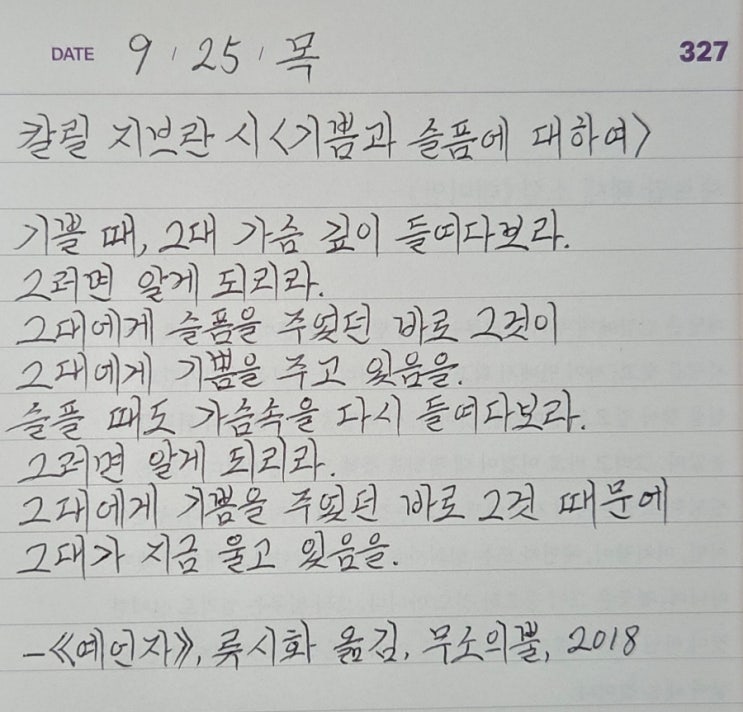 DATE 9 / 25 / 목 327
칼릴 지브란 시 <기쁨과 슬픔에 대하여>
기쁠 때, 그대 가슴 깊이 들여다보라.
그러면 알게 되리라.
그대에게 슬픔을 주었던 바로 그것이
그대에게 기쁨을 주고 있음을.
슬플 때도 가슴속을 다시 들여다보라.
그러면 알게 되리라.
그대에게 기쁨을 주었던 바로 그것 때문에
그대가 지금 울고 있음을.
-《예언자》, 류시화 옮김, 무소의뿔, 2018